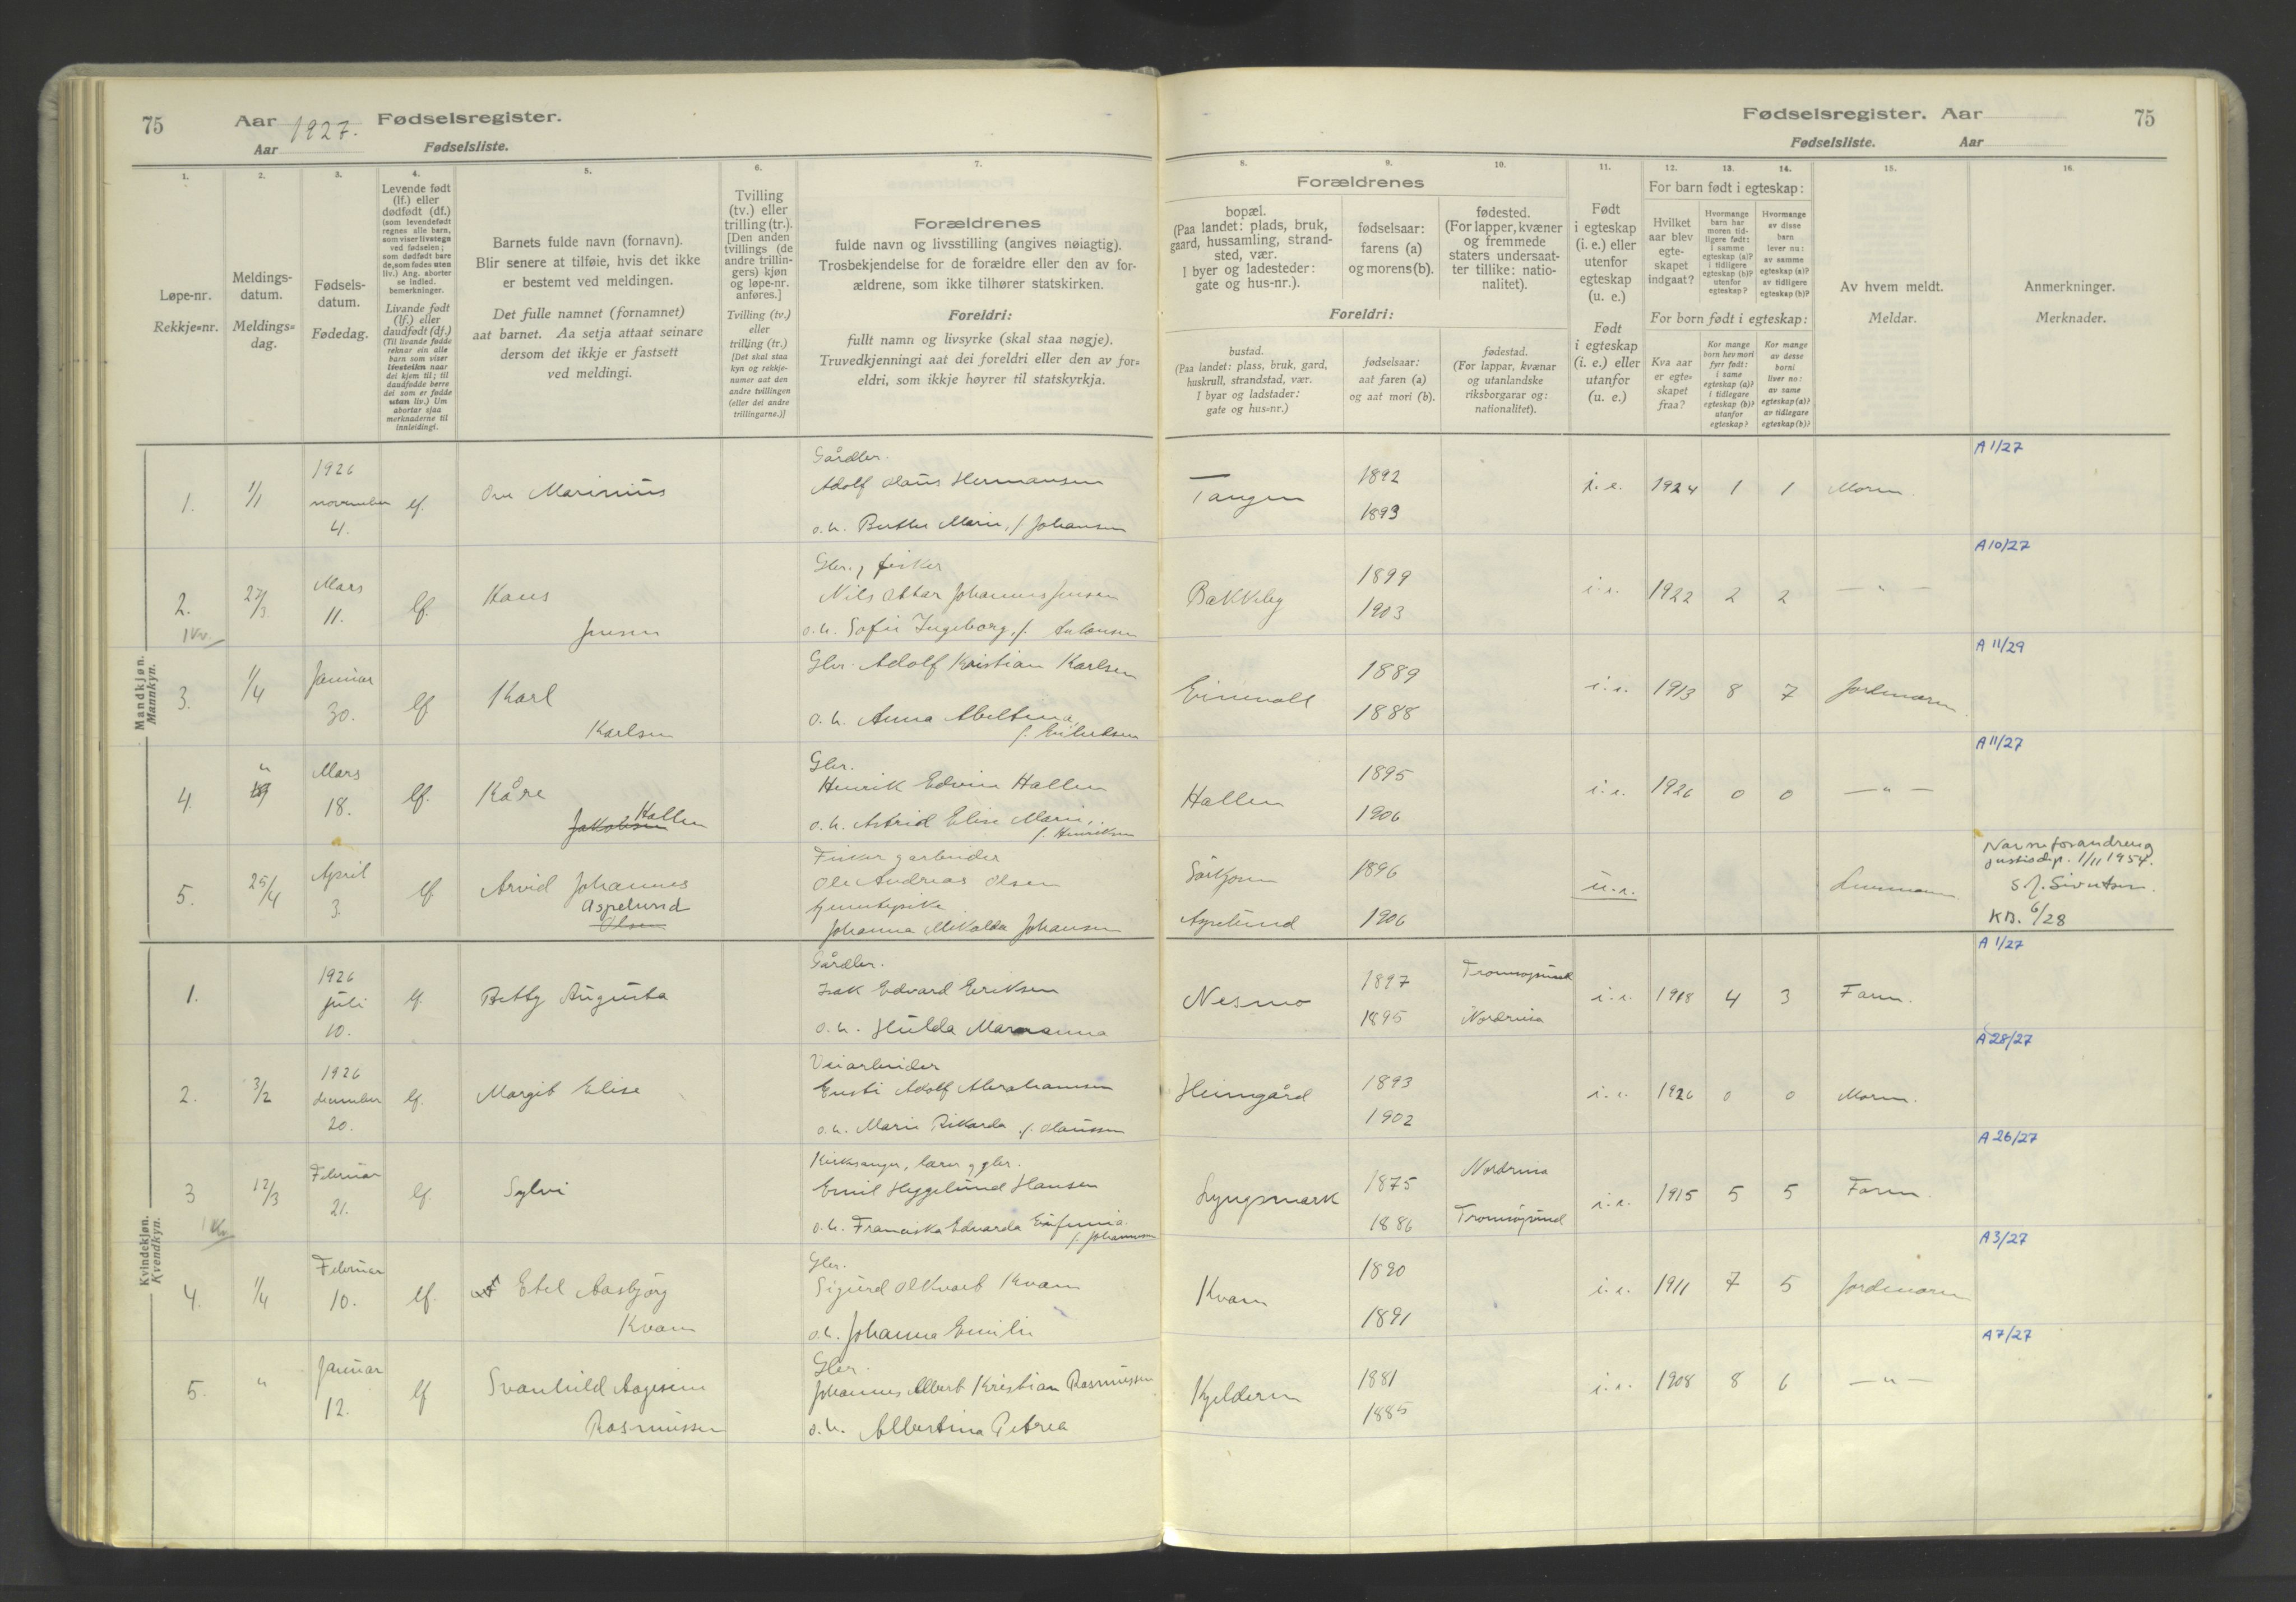 75 Aar 1927. Fødselsregister.
Aar Fødselsliste.
Fødselsregister. Aar 75
Fødselsliste. Aar
1.
Løpe-nr.
Rekkje=nr.
2.
Meldings-
datum.
Meldings=
dag.
3.
Fødsels-
datum.
Fødedag.
4.
Levende født
(lf.) eller
dødfødt (df.)
(som levendefødt
regnes alle barn,
som viser livstegn
ved fødselen;
som dødfødt bare
de, som fødes uten
liv.) Ang. aborter
se indled.
bemerkninger.
Livande født
(lf.) eller
daudfødt (df.)
(Til livande fødde
reknar ein alle
barn som viser
livsteikn naar
dei kjem til; til
daudfødde berre
dei som er fødde
utan liv.) Um
abortar sjaa
merknaderne til
innleidingi.
5.
Barnets fulde navn (fornavn).
Blir senere at tilføie, hvis det ikke
er bestemt ved meldingen.
Det fulle namnet (fornamnet)
aat barnet. Aa setja attaat seinare
dersom det ikkje er fastsett
ved meldingi.
6.
Tvilling
(tv.) eller
trilling (tr.).
[Den anden
tvillings (de
andre trillin-
gers) kjøn
og løpe-nr.
anføres.]
Tvilling (tv.)
eller
trilling (tr.)
[Det skal staa
kyn og rekkje-
numer aat den
andre tvillingen
(eller dei andre
trillingarne.)]
7.
Forældrenes
fulde navn og livsstilling (angives nøiagtig).
Trosbekjendelse for de forældre eller den av for-
ældrene, som ikke tilhører statskirken.
Foreldri:
fullt namn og livsyrke (skal staa nøgje).
Truvedkjenningi aat dei foreldri eller den av for=
eldri, som ikkje høyrer til statskyrkja.
Forældrenes
8.
bopæl.
(Paa landet: plads, bruk,
gaard, hussamling, strand-
sted, vær.
I byer og ladesteder:
gate og hus-nr.).
9.
fødselsaar:
farens (a)
og morens (b).
10.
fødested.
(For lapper, kvæner
og fremmede
staters undersaat-
ter tillike: natio-
nalitet).
Foreldri:
bustad.
(Paa landet: plass, bruk, gard,
huskrull, strandstad, vær.
I byar og ladstader:
gate og hus=nr.)
fødselsaar:
aat faren (a)
og aat mori (b).
fødestad.
(For lappar, kvænar
og utanlandske
riksborgarar og:
nationalitet).
11.
Født
i egteskap
(i. e.) eller
utenfor
egteskap
(u. e.)
Født
i egteskap
(i. e.) eller
utanfor
(u. e.)
12. 13. 14.
For barn født i egteskap:
Hvilket
aar blev
egte-
skapet
indgaat?
Hvormange
barn har
moren tid-
ligere født:
i samme
egteskap (a)?
i tidligere
egteskap (b)?
utenfor
egteskap?
Hvormange
av disse
barn
lever nu:
av samme
egteskap (a)?
av tidligere
egteskap (b)?
For born født i egteskap:
Kva aar
er egte=
skapet
fraa?
Kor mange
born hev mori
fyrr født:
i same
egteskap (a)?
i tidlegare
egteskap (b)?
utanfor
egteskap?
Kor mange
av desse
borni
liver no:
av same
egteskap (a)?
av tidlegare
egteskap (b)?
15.
Av hvem meldt.
Meldar.
16.
Anmerkninger.
Merknader.
Mandkjøn.
Mannkyn.
1. 1/1 1926 november 4. lf. Marinius
Gårdbr.
Adolf Hermansen
o. h. Marie, f. Johansen
Tangen 1892 1893 i. e. 1924 1 1 Moren. A 1/27
2. 1 Kv. 27/3 Mars 11. lf. Hans
Jensen
Gbr. og fisker
Nils Ottar Johannes Jensen
o. h. Sofie Ingeborg, f.
Bakkeby 1899 1903 i. e. 1922 2 2 — " — A 10/27
3. 1/4 Januar 30. lf Karl
Karlsen
Gbr. Adolf Kristian Karlsen
o. h. Anna
f. Eilertsen
1889 1888 i. e. 1913 8 7 Jordmoren. A 11/29
4. " Mars 18. lf. Kåre
Jakobsen Hallen
Gbr.
Henrik Edvin Hallen
o. h. Astrid Elise Marie,
f. Henriksen
Hallen 1895 1906 i. e. 1926 0 0 — " — A 11/27
5. 25/4 April 3. lf Arvid Johannes
Aspelund
Olsen
Fisker og arbeider
Ole Andreas Olsen
Johanna Mikalda Johansen
1896
Aspelund 1906 u. e. Lensmann
Navneforandring
justisdep. 1/11 1954.
KB. 6/28
Kvindekjøn.
Kvendkyn.
1. 1926 juli 10. lf. Betty Augusta
Gårdbr.
Isak Edvard Eriksen
o. h. Hulda Marianna
Nesmo 1897 Tromsøysund
1895 Nordreisa i. e. 1918 4 3 Faren. A 1/27
2. 3/2 1926 desember 20. lf. Margit Elise
Veiarbeider
Adolf Abrahamsen
o. h. Marie Rikarda f. Hansen
Heimgård 1893 1902 i. e. 1926 0 0 Moren. A 28/27
3 1 Kv. 12/3 Februar 21. lf. Sylvi
Kirkesanger, lærer og gbr.
Emil Heggelund Hansen
o. h. Franciska Edvarda Eufemia
f. Johannesen
Lyngsmark 1875 Nordreisa
1886 Tromsøysund i. e. 1915 5 5 Faren. A 26/27
4. 1/4 Februar 10. lf. Etel Aasbjørg
Kvam
Gbr.
Sigurd Kvam
o. h. Johanna Emilie
Kvam 1890 1891 i. e. 1911 7 5 Jordmoren A 3/27
5. " Januar 12. lf Svanhild
Rasmussen
Gbr.
Johannes Albert Kristian Rasmussen
o. h. Albertina Petrea
Kjelderen 1881 1885 i. e. 1908 8 6 — " — A 7/27